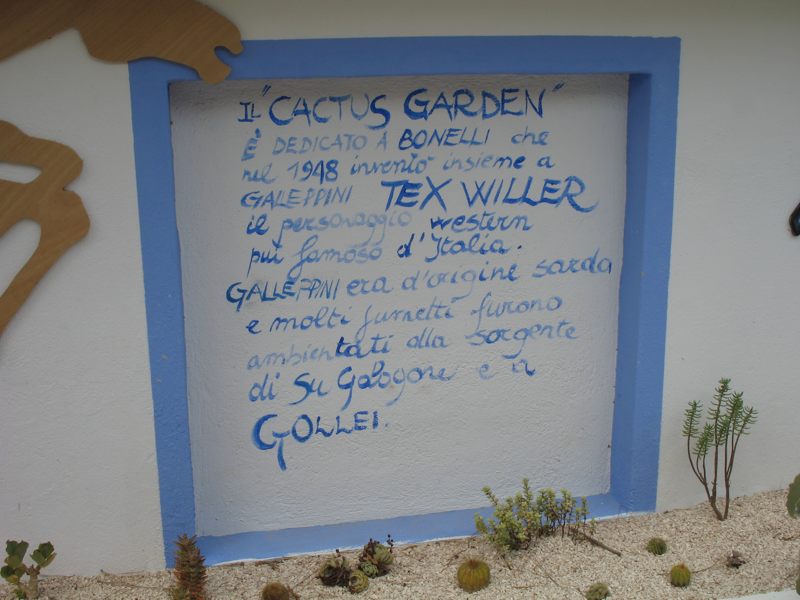 IL "CACTUS GARDEN"
È DEDICATO A BONELLI che
nel 1948 inventò insieme a
GALEPPINI TEX WILLER
il personaggio western
piú famoso d'Italia.
GALLEPPINI era d'origine sarda
e molti fumetti furono
ambientati alla sorgente
di Su Gologone e a
GOLLEI.